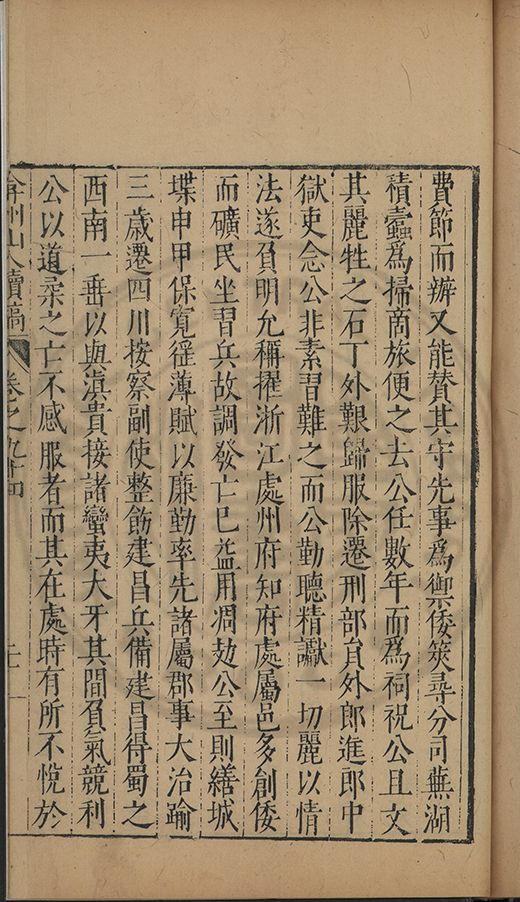 費節而辦又能賛其守先事爲禦倭筴尋分司蕪湖
積蠧爲掃商旅便之去公任數年而爲祠祝公且文
其麗牲之石丁外艱歸服除遷刑部貟外郎進郎中
獄吏念公非素習難之而公勤聽精讞一切麗以情
法遂負明允稱擢浙江處州府知府處屬邑多創倭
而礦民坐習兵故調發亡已益用凋攰公至則繕城
堞申甲保寬徭薄賦以廉勤率先諸屬郡事大治踰
三歳遷四川按察副使整飭建昌兵備建昌得蜀之
西南一垂以與滇貴接諸蠻夷大牙其間負氣競利
公以道柔之亡不感服者而其在處時有所不悅於
弇州山人續稿 卷之九十四